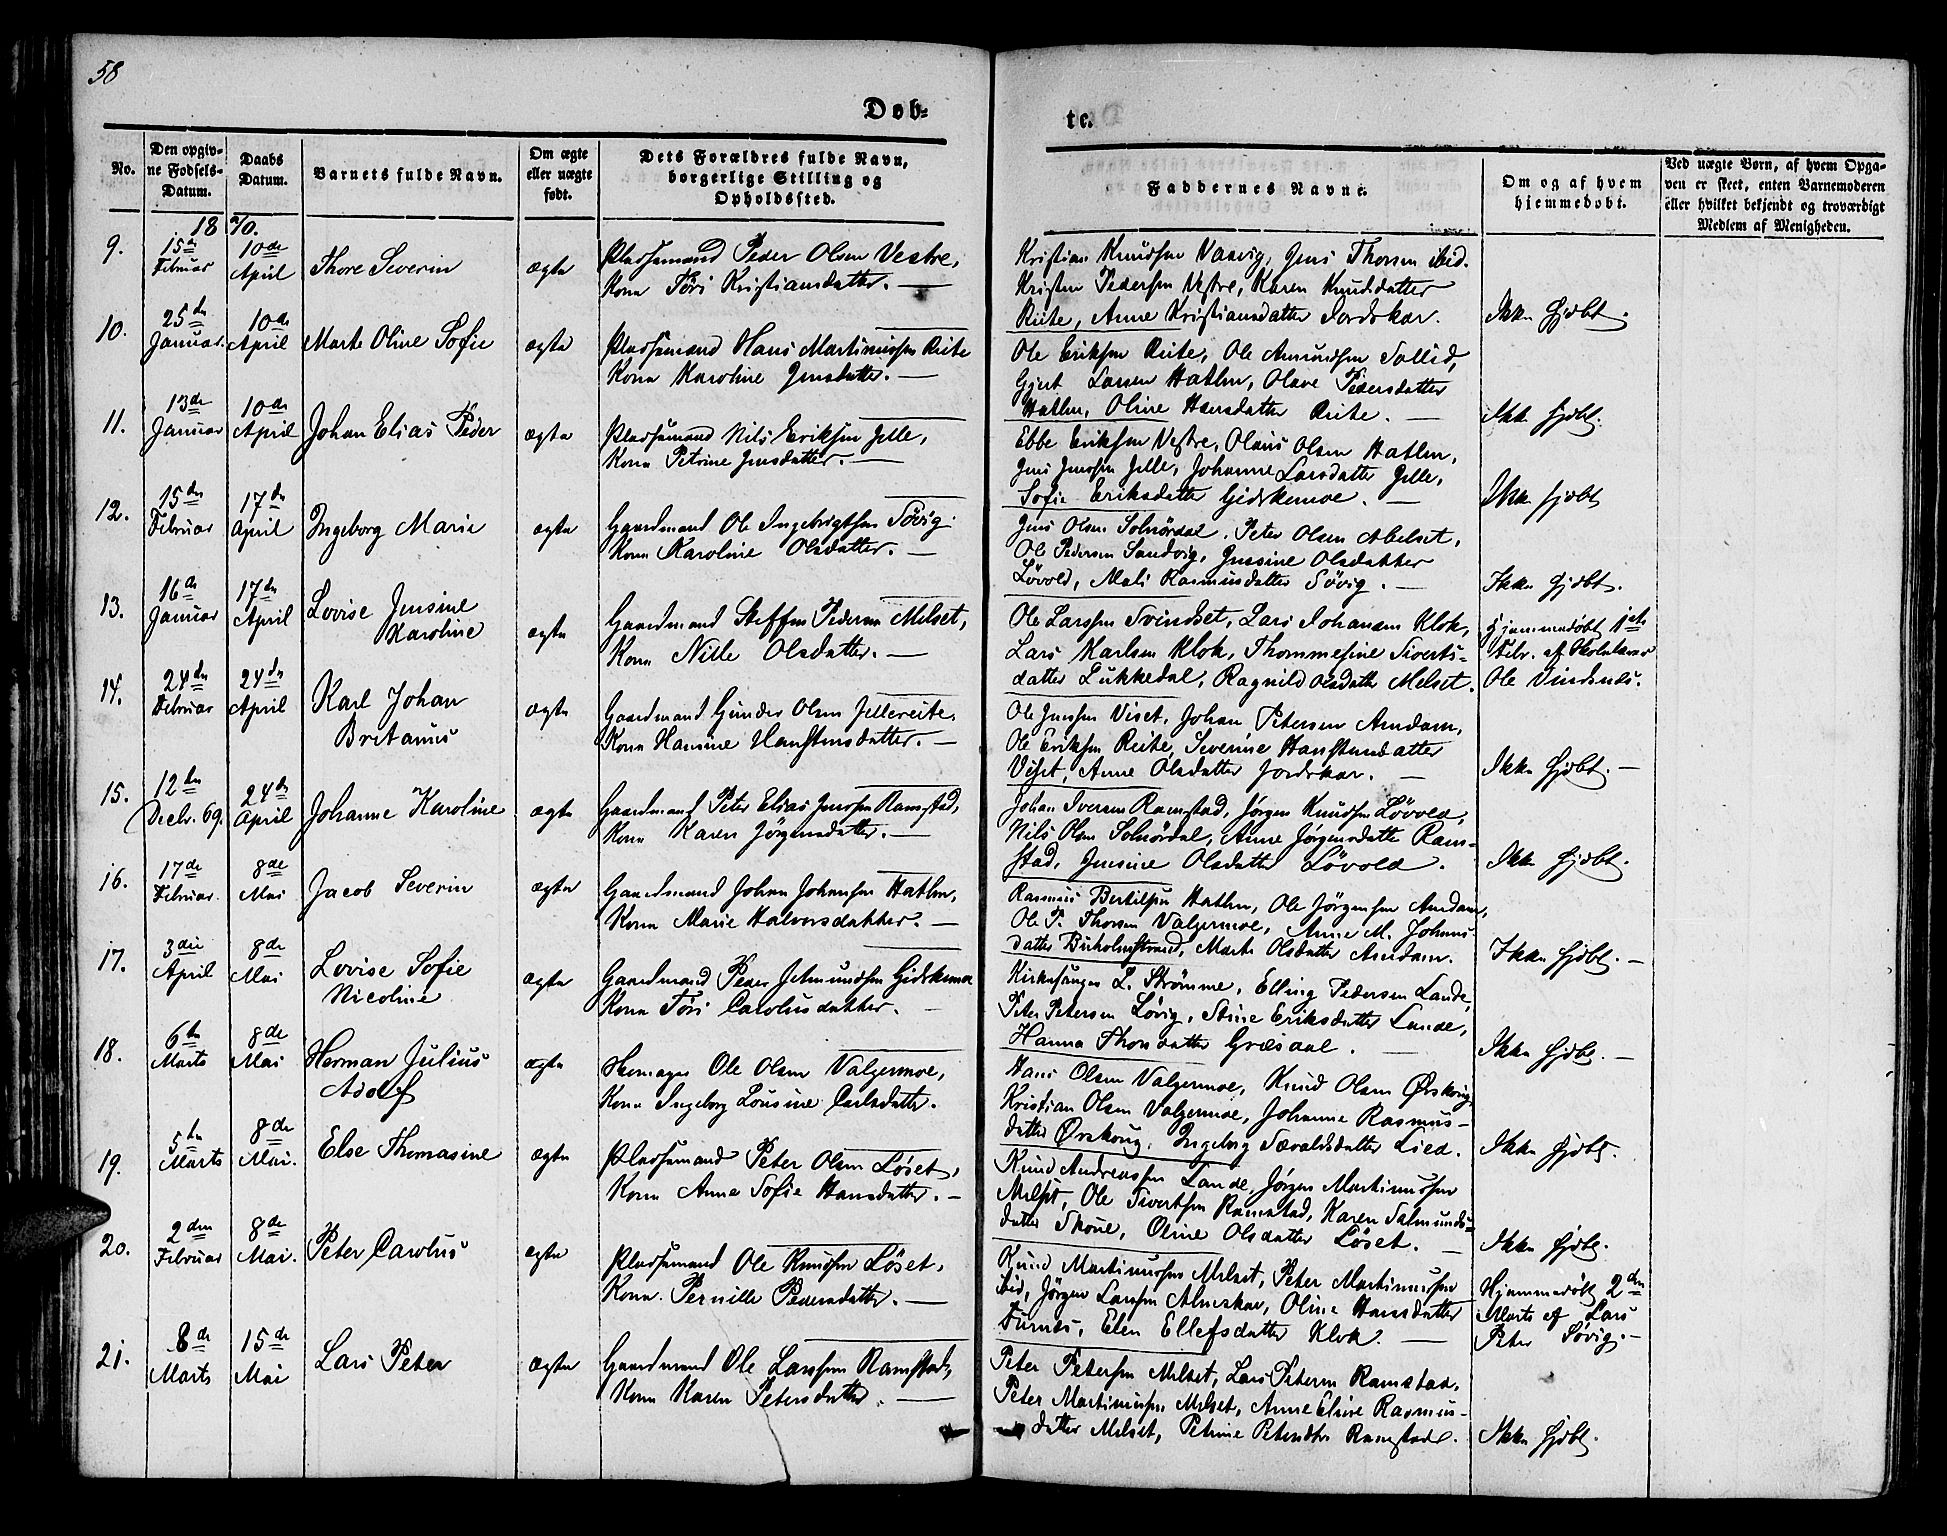 58
Døb-
te.
No.
Den opgiv-
ne Fødsels-
Datum.
Daabs
Datum.
Barnets fulde Navn.
Om ægte
eller uægte
født.
Dets Forældres fulde Navn,
borgerlige Stilling og
Opholdssted.
Faddernes Navne.
Om og af hvem
hjemmedøbt.
Ved uægte Børn, af hvem Opga-
ven er skeet, enten Barnemoderen
eller hvilket bekjendt og troværdigt
Medlem af Menigheden.
18 70.
9.
15de
Februar
10de
April
Thore Severin
ægte
Pladsemand Peder Olsen Vestre,
Kone Jøri Kristiansdatter. —
Kristian Knudsen Vaavig, Jens Thorsen ibid.
Kristen Pedersen Vestre, Karen Knudsdatter
Reite, Anne Kristiansdatter Jordskar.
Ikke hjdbt.
10.
25de
Januar.
10de
April
Marte Oline Sofie
ægte
Pladsemand Hans Martinussen Reite
Kone Karoline Jensdatter. —
Ole Eriksen Reite, Ole Amundsen Sollid,
Gjert Larsen Hatlen, Olave Pedersdatter
Hatlen, Oline Hansdatter Reite. —
Ikke hjdbt.
11.
13de
Januar
10de
April
Johan Elias Peder
ægte
Pladsemand Nils Eriksen Jelle,
Kone Petrine Jensdatter. —
Ebbe Eriksen Vestre, Olaus Olsen Hatlen,
Jens Jenssen Jelle, Johanne Larsdatter Jelle,
Sofie Eriksdatter Gidskemoe. —
Ikke hjdbt
12.
15de
Februar
17de
April
Ingeborg Marie
ægte
Gaardmand Ole Ingebrigtsen Søvig.
Kone Karoline Olsdatter. —
Jens Olsen Solnørdal, Peter Olsen Abelset,
Ole Pedersen Sandvig, Jensine Olsdatter
Løvold, Mali Rasmusdatter Søvig. —
Ikke hjdbt.
13.
16de
Januar
17de
April
Lovise Jensine
Karoline
ægte
Gaardmand Steffen Pedersen Melset,
Kone Nille Olsdatter. —
Ole Larssen Svindset, Lars Johansen Klok,
Lars Karlsen Klok, Thommesine Siverts-
datter Lukkedal, Ragnild Olsdatter Melset.
Hjemmedøbt 1ste
Febr. af Skolelærer
Ole Vindsnes.
14.
24de
Februar
24de
April
Karl Johan
Britanus
ægte
Gaardmand Gunder Olsen Jellereite,
Kone Hansine Hanstensdatter. —
Ole Jenssen Viset, Johan Petersen Amdam,
Ole Eriksen Reite, Severine Hanstensdatter
Viset, Anne Olsdatter Jordskar. —
Ikke hjdbt. —
15.
12te
Decbr. 69.
24de
April
Johanne Karoline
ægte
Gaardmand Peter Elias Jenssen Ramstad,
Kone Karen Jørgensdatter. —
Johan Iversen Ramstad, Jørgen Knudsen Løvold,
Nils Olsen Solnørdal, Anne Jørgensdatte Ram-
stad, Jensine Olsdatter Løvold.
Ikke hjdbt.
16.
17de
Februar.
8de
Mai
Jacob Severin
ægte
Gaardmand Johan Johansen Hatlen,
Kone Marie Halvorsdatter. —
Rasmus Bertilsen Hatlen, Ole Jørgensen Amdam,
Ole P. Thorsen Valgermoe, Anne M. Johans-
datter Birkholmstrand, Marte Olsdatter Amdam.
Ikke hjdbt. —
17.
3die
April
8de
Mai
Lovise Sofie
Nicoline
ægte
Gaardmand Peder Jetmundsen Gidskemoe
Kone Jøri Carolusdatter. —
Kirkesanger L. Strømme, Elling Pedersen Lande,
Peter Petersen Løvig, Stine Eriksdatter Lande,
Hanna Thorsdatter Græsdal. —
Ikke hjdbt. —
18.
6te
Marts
8de
Mai
Herman Julius
Adolf
ægte
Ole Olsen Valgermoe,
Kone Ingeborg Lousine Carlsdatter.
Hans Olsen Valgermoe, Knud Olsen Ørskoug,
Kristian Olsen Valgermoe, Johanne Rasmus-
datter Ørskoug, Ingeborg Sævaldsdatter Lied.
Ikke hjdbt.
19.
5te
Marts
8de
Mai.
Else Thomasine
ægte
Pladsemand Peter Olsen Løset,
Kone Anne Sofie Hansdatter. —
Knud Andreassen Lande, Jørgen Martinussen
Melset, Ole Sivertsen Ramstad, Karen Salmunds-
datter Skoue, Oline Olsdatter Løset. —
Ikke hjdbt.
20.
2den
Februar
8de
Mai.
Peter Carolus
ægte
Pladsemand Ole Knudsen Løset,
Kone Pernille Pedersdatter. —
Knud Martinussen Melset, Peter Martinussen
ibid, Jørgen Larssen Almeskar, Oline Hansdatter
Furnes, Elen Ellefsdatter Klok. —
Hjemmedøbt 2den
Marts af Lars
Peter Søvig. —
21.
8de
Marts
15de
Mai
Lars Peter
ægte
Gaardmand Ole Larssen Ramstad,
Kone Karen Petersdatter. —
Peter Petersen Melset, Lars Petersen Ramstad,
Peter Martinussen Melset, Anne Eline Rasmus-
datter Melset, Petrine Petersdtr Ramstad.
Ikke hjdbt.